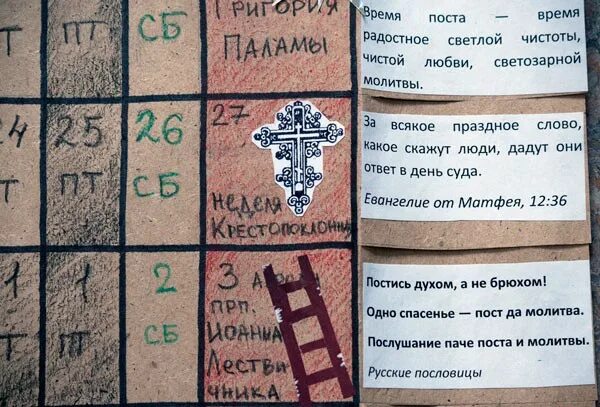 Григория
т пт сб Паламы
24 25 26 27
т пт сб неделя
Крестопоклонна
1 1 2 3 апрели
т пт сб прп.
Иоанна
Лестви
чника
Время поста — время
радостное светлой чистоты,
чистой любви, светозарной
молитвы.
За всякое праздное слово,
какое скажут люди, дадут они
ответ в день суда.
Евангелие от Матфея, 12:36
Постись духом, а не брюхом!
Одно спасенье — пост да молитва.
Послушание паче поста и молитвы.
Русские пословицы